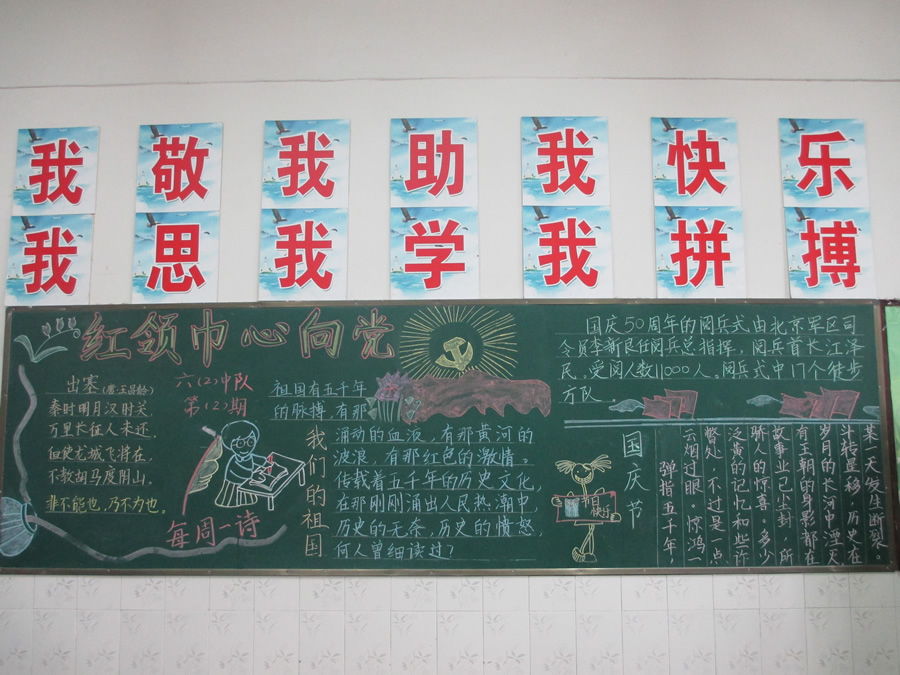 我敬我助我快乐
我思我学我拼搏
红领巾心向党
出塞(唐·王昌龄)
秦时明月汉时关
万里长征人未还.
但使龙城飞将在
不教胡马度阴山.
非不能也,乃不为也.
六(2)中队
第(2)期
每周一诗
祖国有五千年
的脉搏,有那
涌动的血液,有那黄河的
波浪,有那红色的激情。
传载着五千年的历史文化,
在那刚刚涌出人民热潮中,
历史的无奈,历史的愤怒,
何人曾细读过?
我们的祖国
国庆50周年的阅兵式由北京军区司
令员李新良任阅兵总指挥,阅兵首长江泽
民,受阅人数11000人。阅兵式中17个徒步
方队。
国庆节
某一天发生断裂
斗转星移,历史在
岁月的长河中湮灭
有王朝的身影都在
故事业已尘封,所
骄人的惊喜。多少
泛黄的记忆和些许
瞥处,不过是一点
云烟过眼。惊鸿一
弹指五千年,